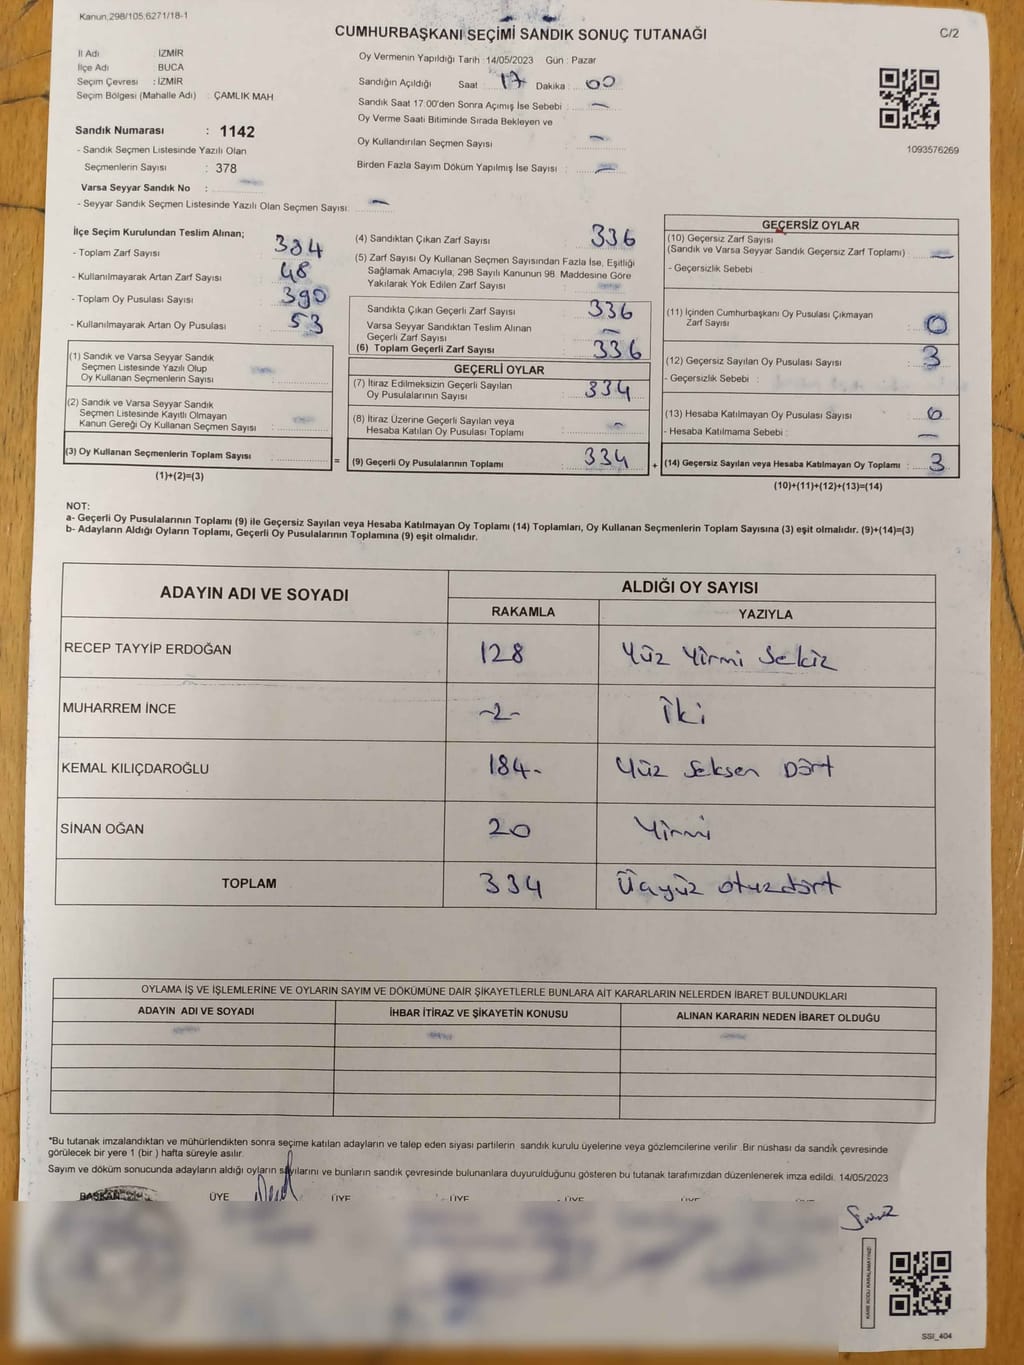 Kanun:298/105;6271/18-1
CUMHURBAŞKANI SEÇİMİ SANDIK SONUÇ TUTANAĞI
C/2
İl Adı : İZMİR
İlçe Adı : BUCA
Seçim Çevresi : İZMİR
Seçim Bölgesi (Mahalle Adı) : ÇAMLIK MAH
Sandık Numarası : 1142
- Sandık Seçmen Listesinde Yazılı Olan
Seçmenlerin Sayısı : 378
Varsa Seyyar Sandık No :
- Seyyar Sandık Seçmen Listesinde Yazılı Olan Seçmen Sayısı: —
Oy Vermenin Yapıldığı Tarih :14/05/2023 Gün : Pazar
Sandığın Açıldığı Saat 17 Dakika : 00
Sandık Saat 17:00'den Sonra Açımış İse Sebebi : —
Oy Verme Saati Bitiminde Sırada Bekleyen ve
Oy Kullandırılan Seçmen Sayısı : —
Birden Fazla Sayım Döküm Yapılmış İse Sayısı : —
1093576269
İlçe Seçim Kurulundan Teslim Alınan;
- Toplam Zarf Sayısı : 384
- Kullanılmayarak Artan Zarf Sayısı : 48
- Toplam Oy Pusulası Sayısı : 390
- Kullanılmayarak Artan Oy Pusulası : 53
(1) Sandık ve Varsa Seyyar Sandık
Seçmen Listesinde Yazılı Olup
Oy Kullanan Seçmenlerin Sayısı :
(2) Sandık ve Varsa Seyyar Sandık
Seçmen Listesinde Kayıtlı Olmayan
Kanun Gereği Oy Kullanan Seçmen Sayısı :
(3) Oy Kullanan Seçmenlerin Toplam Sayısı :
(1)+(2)=(3)
(4) Sandıktan Çıkan Zarf Sayısı : 336
(5) Zarf Sayısı Oy Kullanan Seçmen Sayısından Fazla İse, Eşitliği
Sağlamak Amacıyla; 298 Sayılı Kanunun 98. Maddesine Göre
Yakılarak Yok Edilen Zarf Sayısı :
Sandıkta Çıkan Geçerli Zarf Sayısı : 336
Varsa Seyyar Sandıktan Teslim Alınan
Geçerli Zarf Sayısı : —
(6) Toplam Geçerli Zarf Sayısı : 336
GEÇERLİ OYLAR
(7) İtiraz Edilmeksizin Geçerli Sayılan
Oy Pusulalarının Sayısı : 334
(8) İtiraz Üzerine Geçerli Sayılan veya
Hesaba Katılan Oy Pusulası Toplamı : —
= (9) Geçerli Oy Pusulalarının Toplamı : 334
GEÇERSİZ OYLAR
(10) Geçersiz Zarf Sayısı
(Sandık ve Varsa Seyyar Sandık Geçersiz Zarf Toplamı) : —
- Geçersizlik Sebebi
(11) İçinden Cumhurbaşkanı Oy Pusulası Çıkmayan
Zarf Sayısı : 0
(12) Geçersiz Sayılan Oy Pusulası Sayısı : 3
- Geçersizlik Sebebi :
(13) Hesaba Katılmayan Oy Pusulası Sayısı : 0
- Hesaba Katılmama Sebebi : —
+ (14) Geçersiz Sayılan veya Hesaba Katılmayan Oy Toplamı : 3
(10)+(11)+(12)+(13)=(14)
NOT:
a- Geçerli Oy Pusulalarının Toplamı (9) ile Geçersiz Sayılan veya Hesaba Katılmayan Oy Toplamı (14) Toplamları, Oy Kullanan Seçmenlerin Toplam Sayısına (3) eşit olmalıdır. (9)+(14)=(3)
b- Adayların Aldığı Oyların Toplamı, Geçerli Oy Pusulalarının Toplamına (9) eşit olmalıdır.
ADAYIN ADI VE SOYADI
ALDIĞI OY SAYISI
RAKAMLA YAZIYLA
RECEP TAYYİP ERDOĞAN 128 Yüz Yirmi Sekiz
MUHARREM İNCE -2- İki
KEMAL KILIÇDAROĞLU 184- Yüz Seksen Dört
SİNAN OĞAN 20 Yirmi
TOPLAM 334 Üçyüz otuzdört
OYLAMA İŞ VE İŞLEMLERİNE VE OYLARIN SAYIM VE DÖKÜMÜNE DAİR ŞİKAYETLERLE BUNLARA AİT KARARLARIN NELERDEN İBARET BULUNDUKLARI
ADAYIN ADI VE SOYADI İHBAR İTİRAZ VE ŞİKAYETİN KONUSU ALINAN KARARIN NEDEN İBARET OLDUĞU
*Bu tutanak imzalandıktan ve mühürlendikten sonra seçime katılan adayların ve talep eden siyasi partilerin sandık kurulu üyelerine veya gözlemcilerine verilir. Bir nüshası da sandık çevresinde
görülecek bir yere 1 (bir ) hafta süreyle asılır.
Sayım ve döküm sonucunda adayların aldığı oyların sayılarını ve bunların sandık çevresinde bulunanlara duyurulduğunu gösteren bu tutanak tarafımızdan düzenlenerek imza edildi. 14/05/2023
BAŞKAN ÜYE ÜYE ÜYE ÜYE ÜYE
KARE KODU KARALAMAYINIZ!
SSI_404